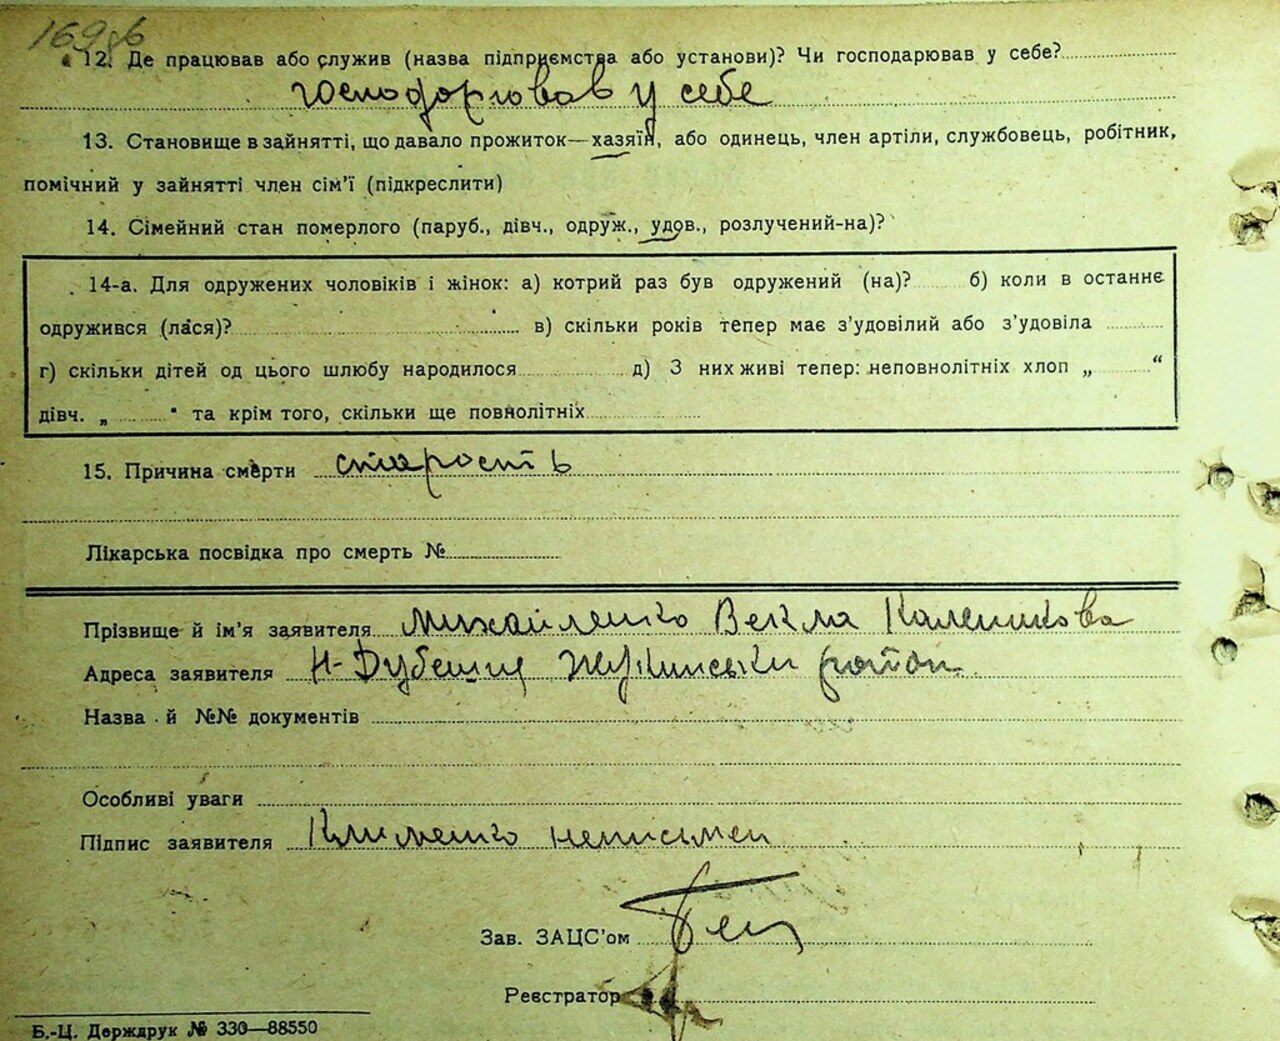 169об
12. Де працював або служив (назва підприємства або установи)? Чи господарював у себе?
господорював у себе
13. Становище в зайнятті, що давало прожиток—хазяїн, або одинець, член артіли, службовець, робітник,
помічний у зайнятті член сім'ї (підкреслити)
14. Сімейний стан померлого (паруб., дівч., одруж., удов., розлучений-на)?
14-а. Для одружених чоловіків і жінок: а) котрий раз був одружений (на)? б) коли в останнє
одружився (лася)? в) скільки років тепер має з'удовілий або з'удовіла
г) скільки дітей од цього шлюбу народилося д) З них живі тепер: неповнолітніх хлоп „ “
дівч. „ “ та крім того, скільки ще повнолітніх
15. Причина смерти старость
Лікарська посвідка про смерть №
Прізвище й ім'я заявителя Михайленко Векла Каленикова
Адреса заявителя Н-Дубешня район
Назва й №№ документів
Особливі уваги
Підпис заявителя Клименко неписьмен
Зав. ЗАЦС'ом
Реєстратор
Б.-Ц. Держдрук № 330—88550